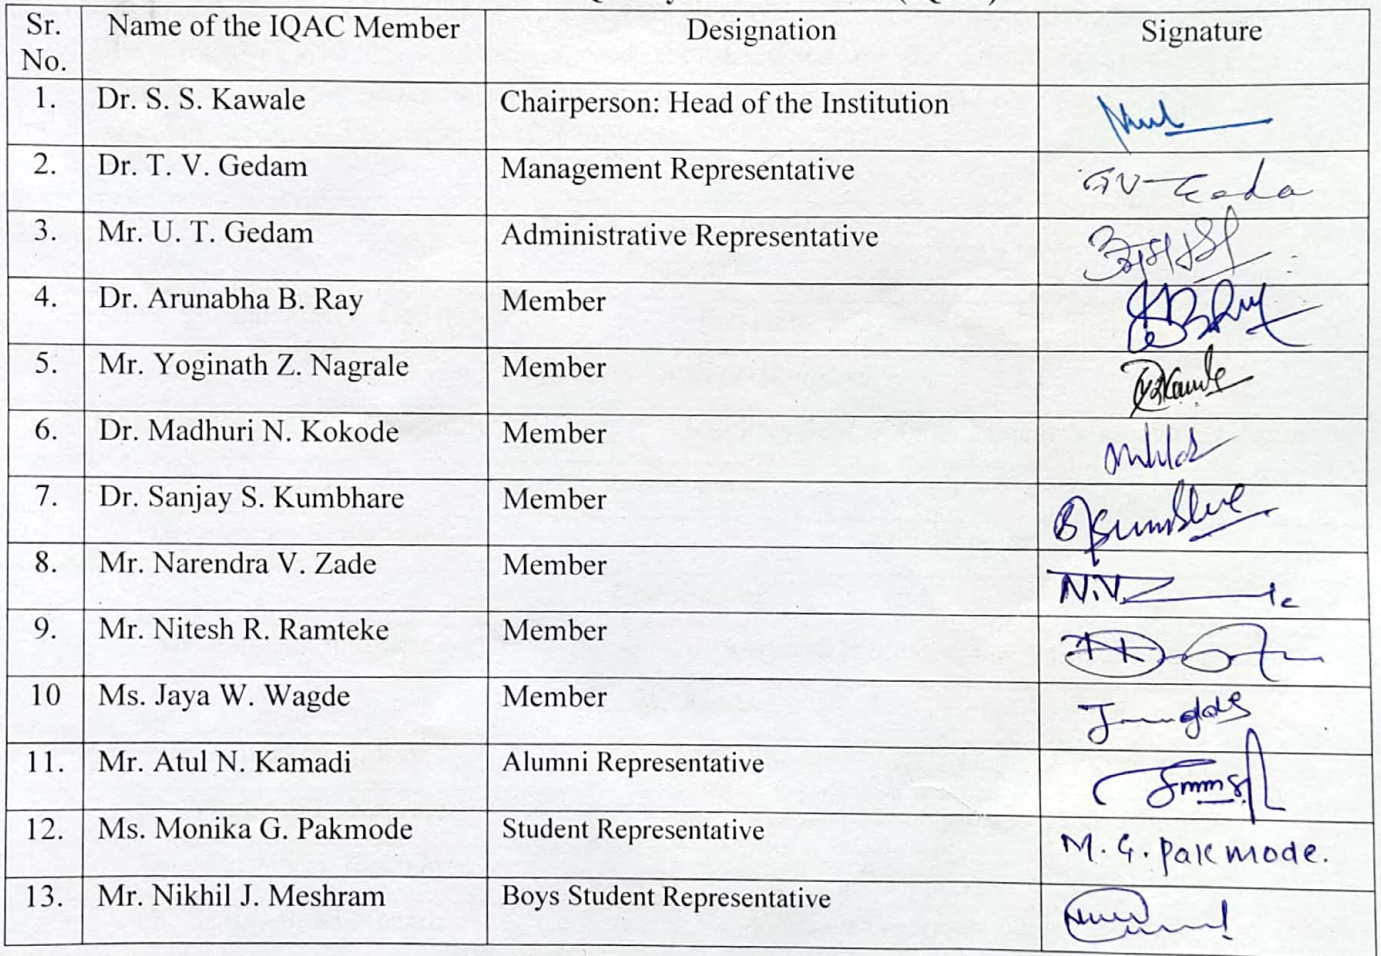 Sr. No. Name of the IQAC Member Designation Signature
1. Dr. S. S. Kawale Chairperson: Head of the Institution
2. Dr. T. V. Gedam Management Representative
3. Mr. U. T. Gedam Administrative Representative
4. Dr. Arunabha B. Ray Member
5. Mr. Yoginath Z. Nagrale Member
6. Dr. Madhuri N. Kokode Member
7. Dr. Sanjay S. Kumbhare Member
8. Mr. Narendra V. Zade Member
9. Mr. Nitesh R. Ramteke Member
10 Ms. Jaya W. Wagde Member
11. Mr. Atul N. Kamadi Alumni Representative
12. Ms. Monika G. Pakmode Student Representative M. G. Pakmode.
13. Mr. Nikhil J. Meshram Boys Student Representative